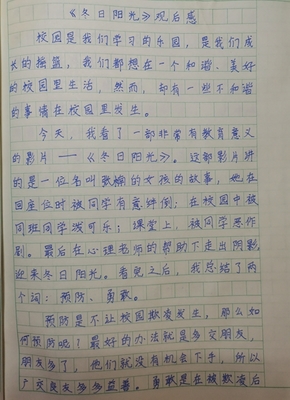 《冬日阳光》观后感
校园是我们学习的乐园，是我们成
长的摇篮，我们都想在一个和谐、美好
的校园里生活，然而，却有一些不和谐
的事情在校园里发生。
今天，我看了一部非常有教育意义
的影片——《冬日阳光》。这部影片讲
的是一位名叫张楠的女孩的故事，她在
回座位时被同学有意绊倒；在校园中被
同班同学泼可乐；课堂上，被同学恶作
剧。最后在心理老师的帮助下走出阴影，
迎来冬日阳光。看完之后，我总结了两
个词：预防、勇敢。
预防是不让校园欺凌发生，那么如
何预防呢？最好的办法就是多交朋友，
朋友多了，他们就没有机会下手，所以
广交良友多多益善。勇敢是在被欺凌后